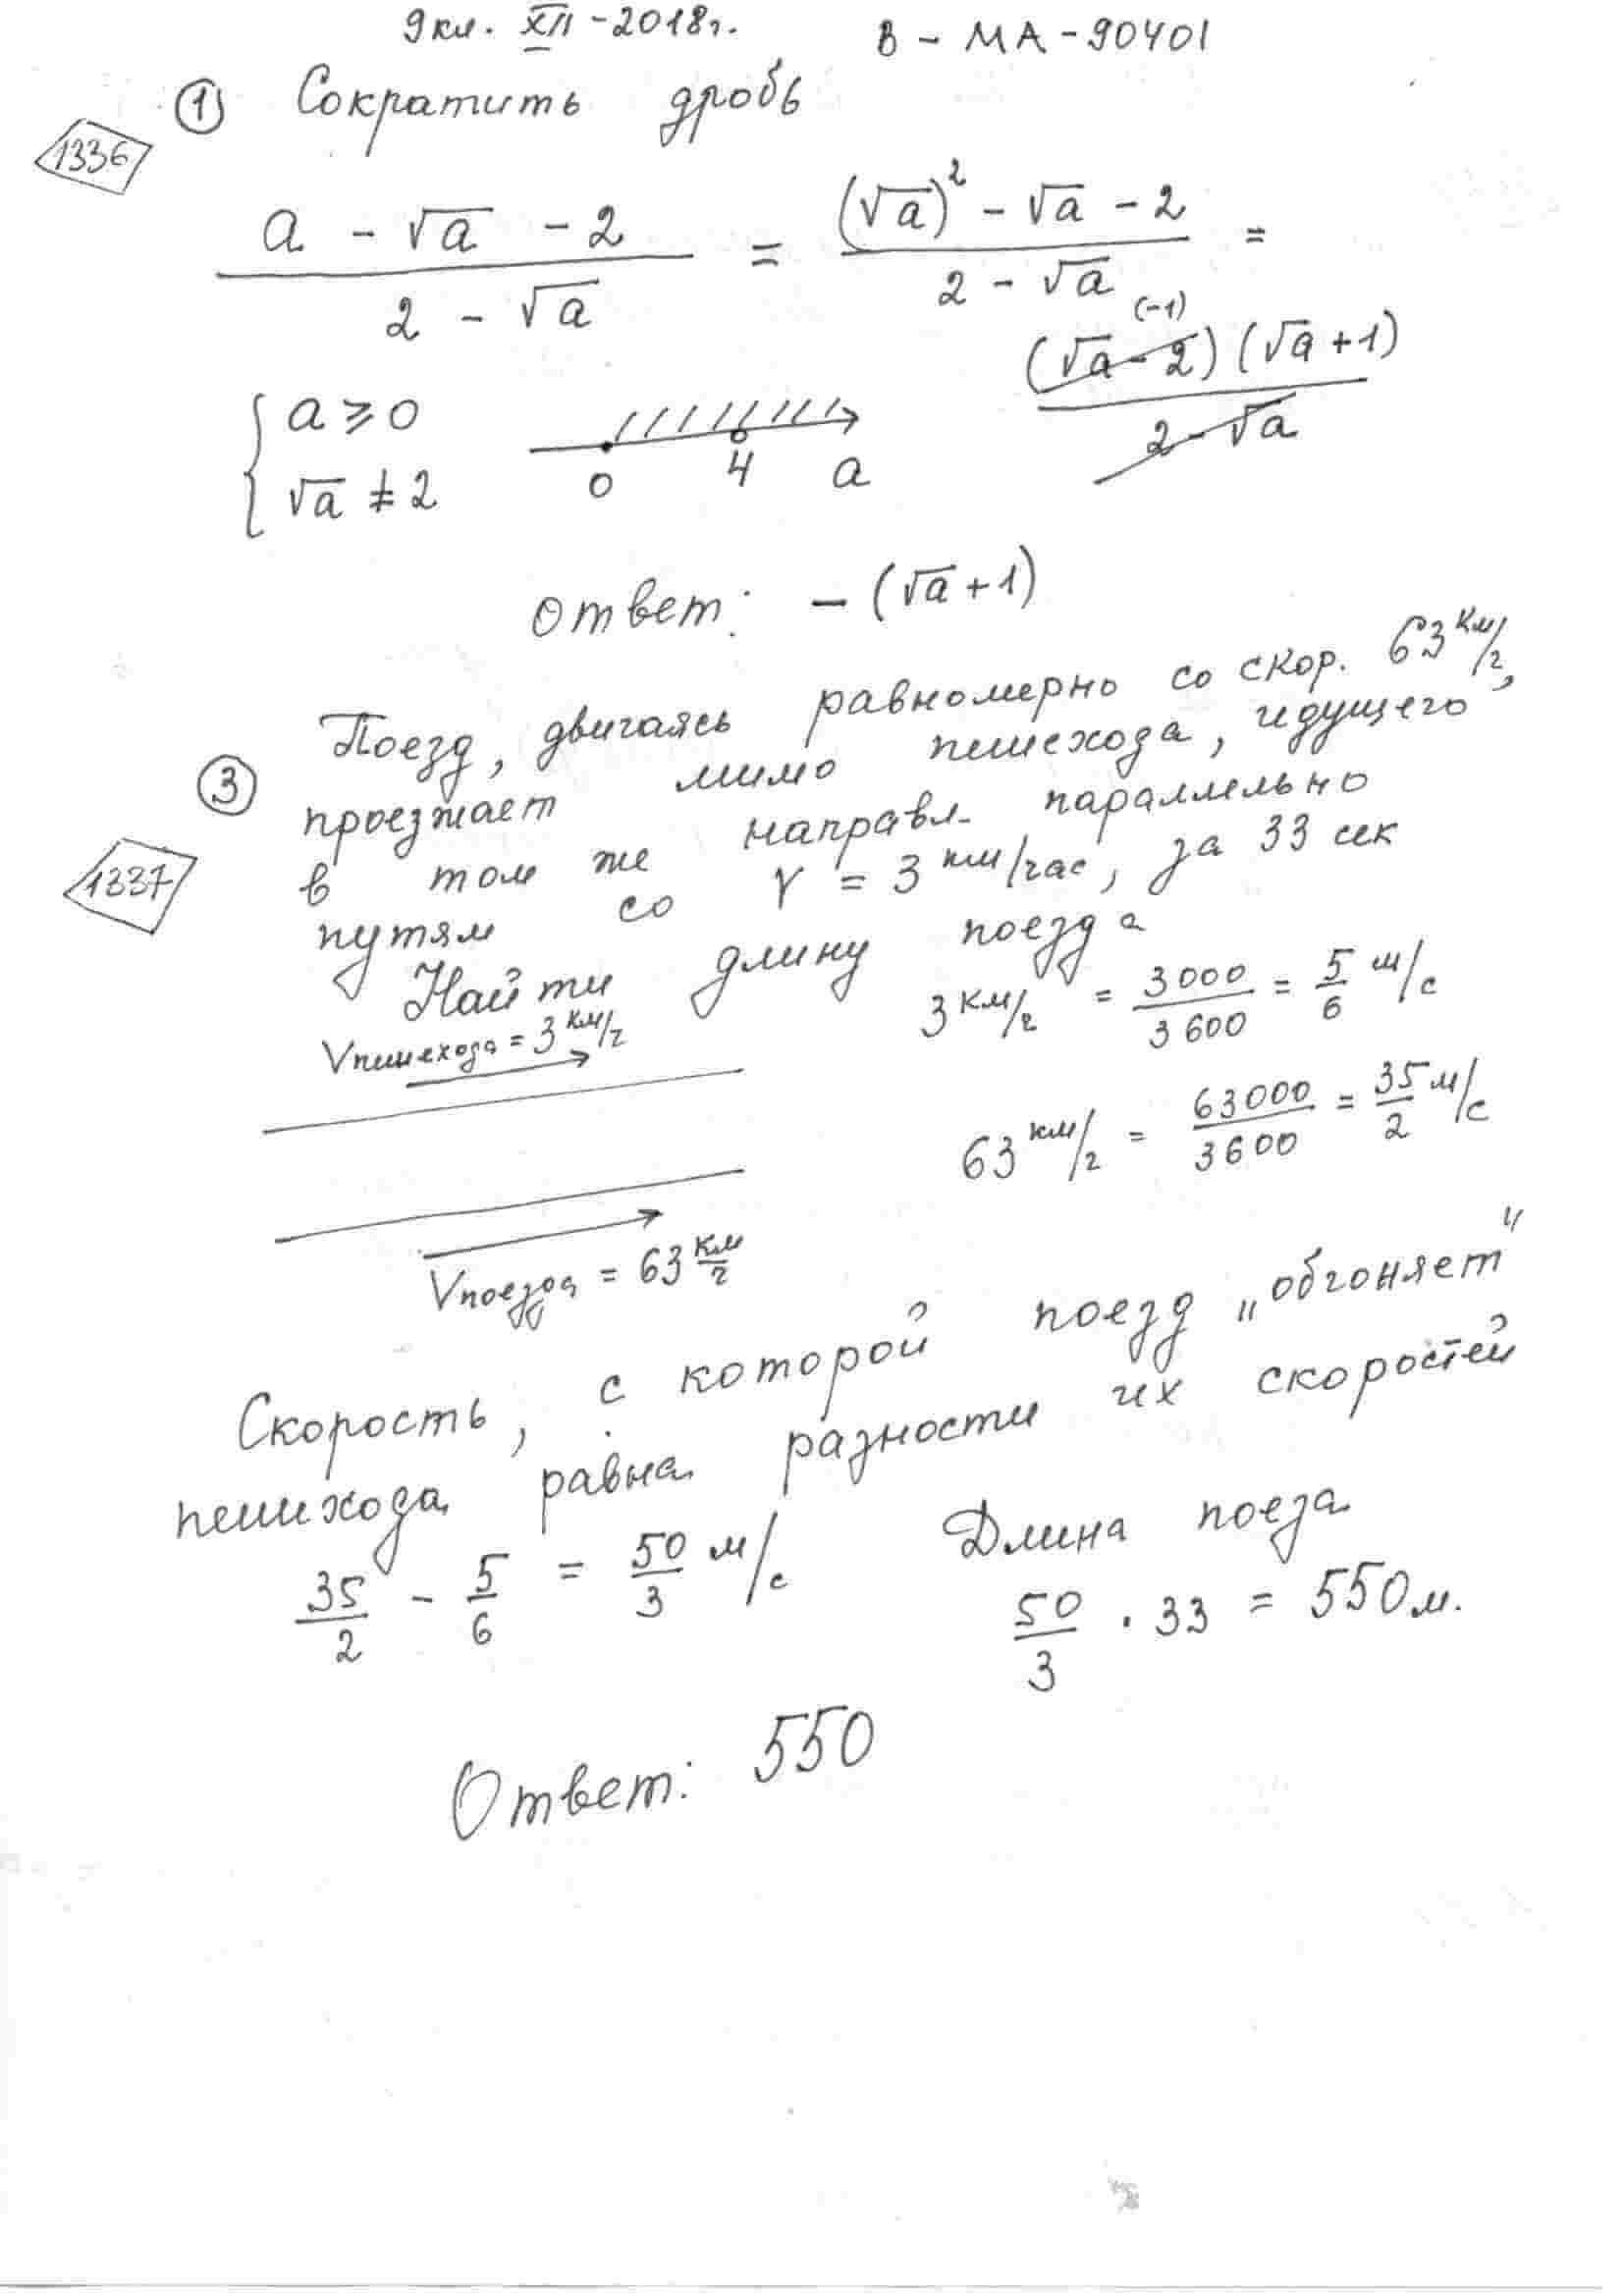 9 кл. XII - 2018г. В - МА - 90401
1 Сократить дробь
1336
(a - √a - 2)/(2 - √a) = ((√a)² - √a - 2)/(2 - √a) =
(-1)
(√a - 2)(√a + 1)/(2 - √a)
{ a ⩾ 0
√a ≠ 2
0 4 a
Ответ: - (√a + 1)
3 Поезд, двигаясь равномерно со скор. 63 км/ч,
проезжает мимо пешехода, идущего
1337
в том же направл. параллельно
путям со V = 3 км/час, за 33 сек
Найти длину поезда
Vпешехода = 3 км/ч
3 км/ч = 3000/3600 = 5/6 м/с
63 км/ч = 63000/3600 = 35/2 м/с
Vпоезда = 63 км/ч
Скорость, с которой поезд „обгоняет"
пешихода равна разности их скоростей
35/2 - 5/6 = 50/3 м/с
Длина поеза
50/3 · 33 = 550 м.
Ответ: 550